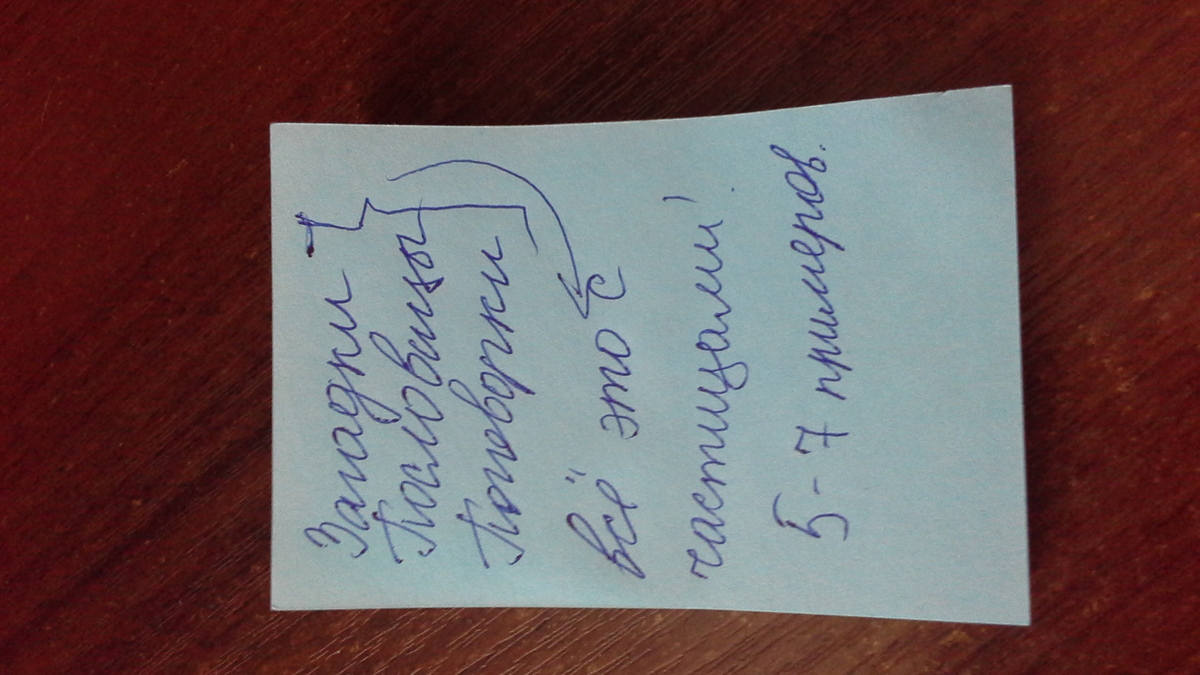 Загадки
Пословицы
Поговорки
всё это с
частицами!
5-7 примеров.